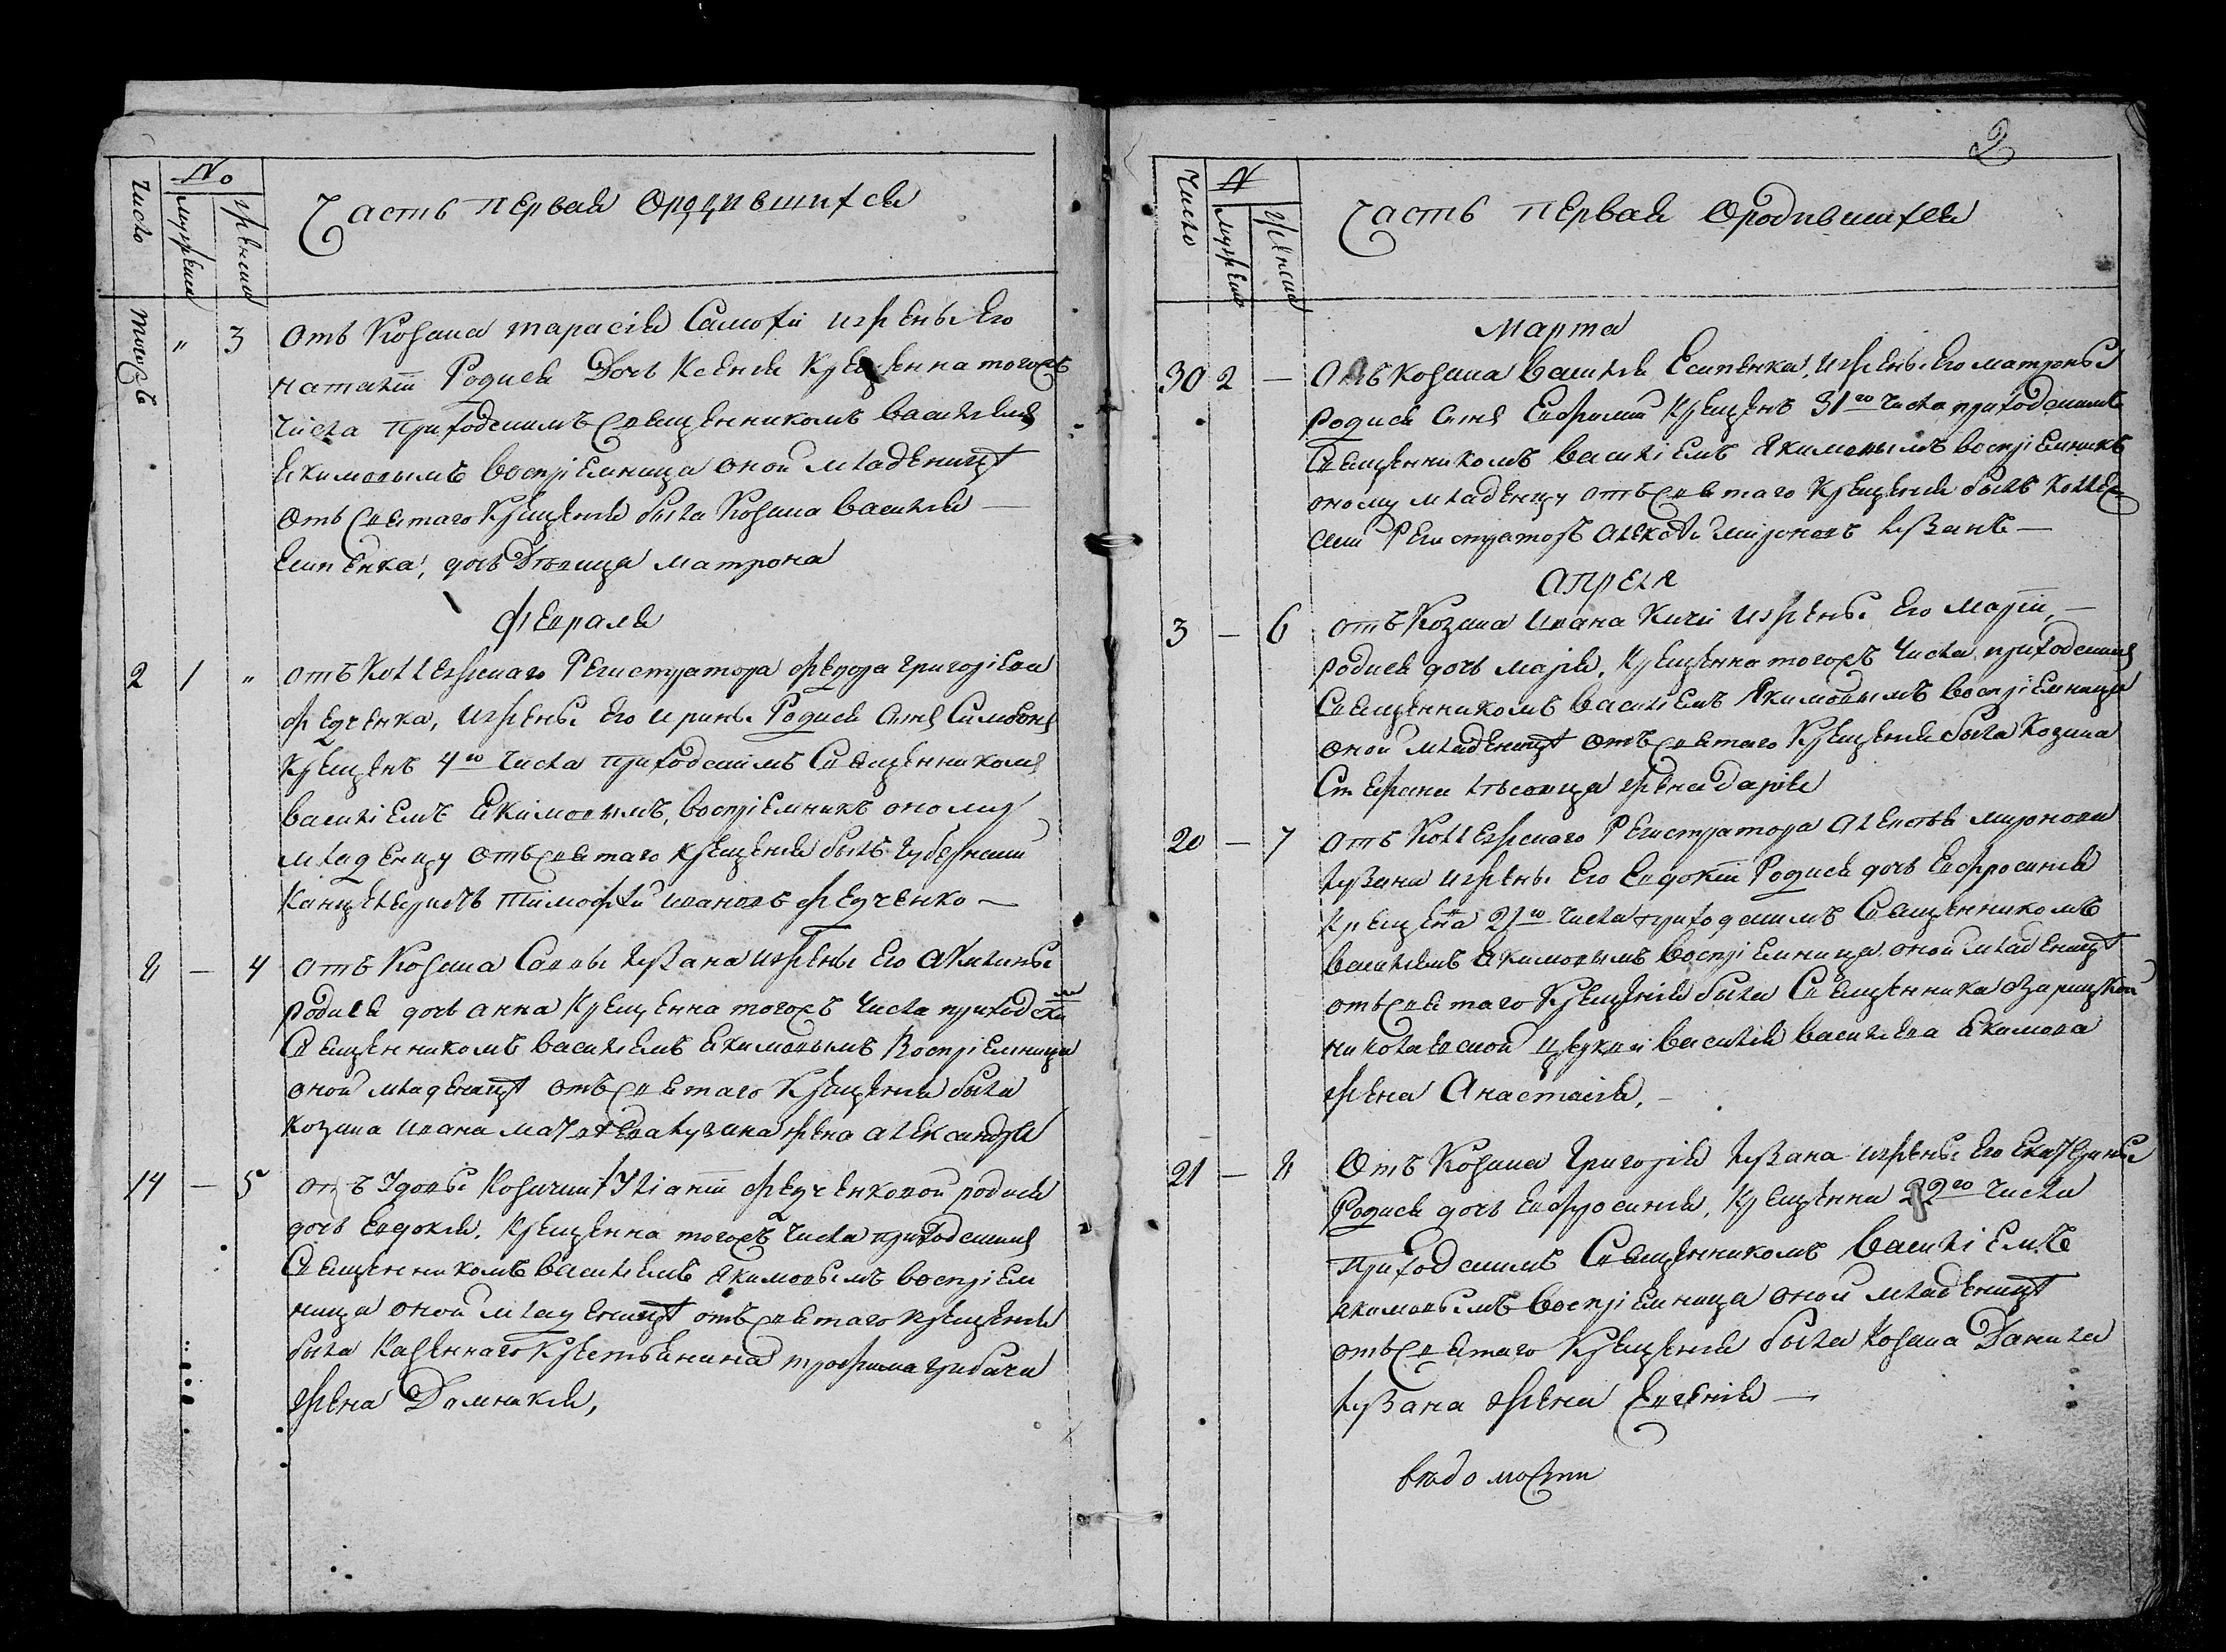 №
Число
Мужеска
Женска
Часть первая ородившихся
тогожъ
" 3 Отъ Козака тарасія Самохи ижены Его
наталіи Родися Дочь Ксенія Крещенна тогожъ
числа приходскимъ Священникомъ василіемъ
Екимовымъ воспріемница оной младеницѣ
отъ святаго Крещенія была Козака василія —
Есипенка, дочь Дѣвица матрона
февраля
2 1 " отъ Коллежскаго Регистратора федора григоріева
федченка, ижены Его ирины Родися Сынъ Симеонъ
Крещенъ 4го числа приходскимъ Священникомъ
василіемъ Екимовымъ, воспріемникъ оному
младенцу отъ святаго крещенія былъ губернскій
Канцеляристъ Тимофѣй ивановъ федченко —
8 — 4 отъ Козака Саввы лузана ижены Его Акилины
родися дочь анна Крещенна тогожъ числа приходским
Священникомъ василіемъ Екимовымъ воспріемница
оной младеницѣ отъ святаго Крещенія была
козака ивана матвѣева лузана жена александра
14 — 5 отъ Удовы Козачки Уліаніи федченковой родися
дочь Евдокія, Крещенна тогожъ числа приходскимъ
Священникомъ василіемъ Якимовымъ воспріем
ница оной младеницѣ отъ святаго крещенія
была Казеннаго Крестьянина трофима грибача
жена Домникія,
2
№
Число
Мужеска
Женска
Часть первая ородившихся
Марта
30 2 — Отъ козака василія Есипенка, ижены Его матроны
родися Сынъ Евфимій Крещенъ 31го числа приходскимъ
Священникомъ василіемъ Якимовымъ воспріемникъ
оному младенцу отъ святаго Крещенія былъ Коллеж
скій Регистраторъ алексѣй мироновъ лузанъ —
Апреля
3 — 6 отъ Козака ивана Кичи ижены Его Маріи, —
родися дочь марія, Крещенна тогожъ числа, приходскимъ
Священникомъ василіемъ Якимовымъ воспріемница
оной младеницѣ отъ святаго Крещенія была Козака
Стефана лѣсовца жена Дарія
20 — 7 отъ Коллежскаго Регистратора алексѣя миронова
лузана ижены Его Евдокіи Родися дочь Евфросинія
Крещена 21го числа приходскимъ Священникомъ
василіемъ Екимовымъ воспріемница оной младеницѣ
отъ святаго Крещенія была Священника
николаевской церкви василія василіева Екимова
жена Анастасія, —
21 — 8 Отъ Козака Григорія лузана ижены Его Екатерины
Родися дочь Евфросинія, Крещенна 22го числа
приходскимъ Священникомъ василіемъ
якимовымъ воспріемница оной младеницѣ
отъ святаго Крещенія была Козака Данила
лузана жена Евгенія —
вѣдомости